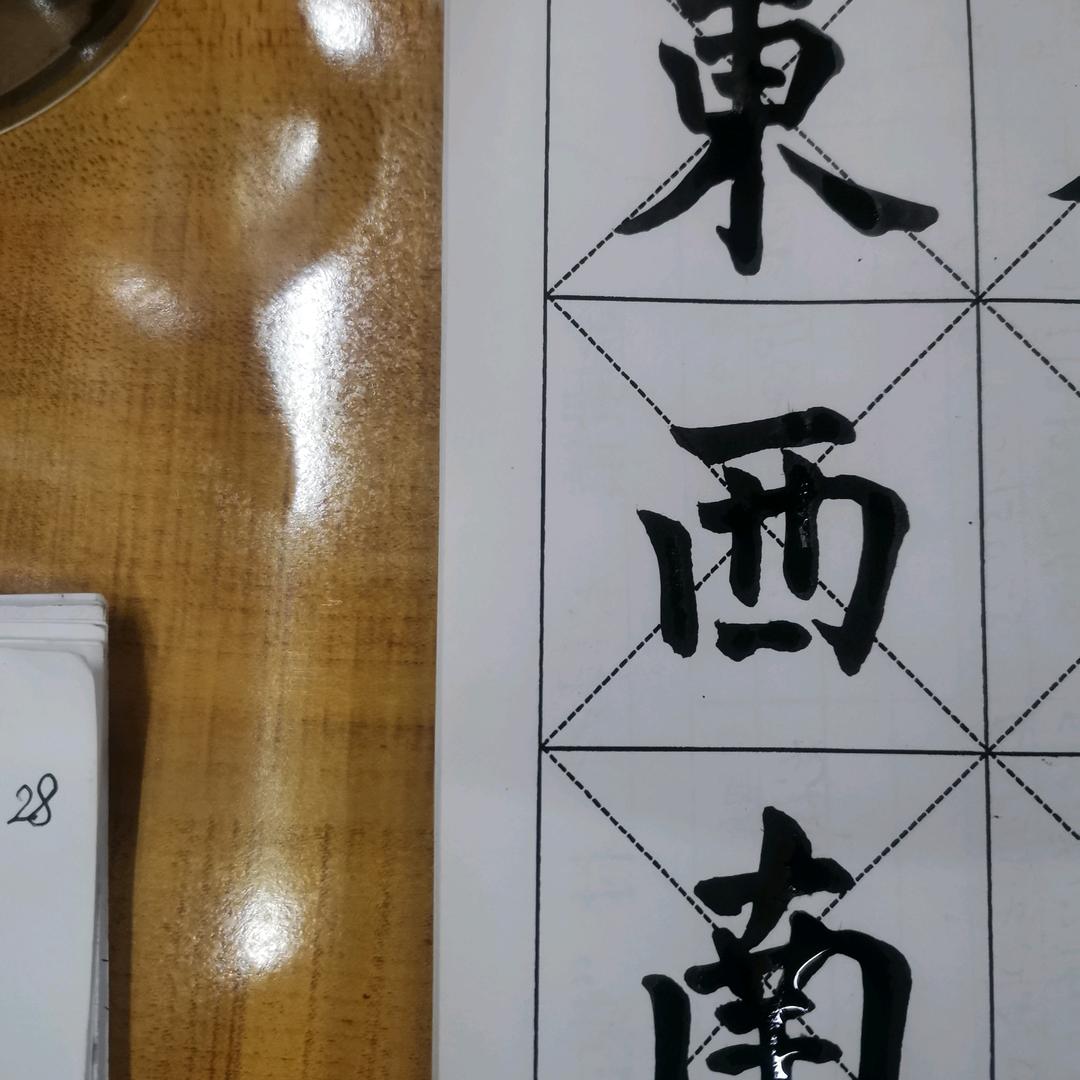 東
西
南
28